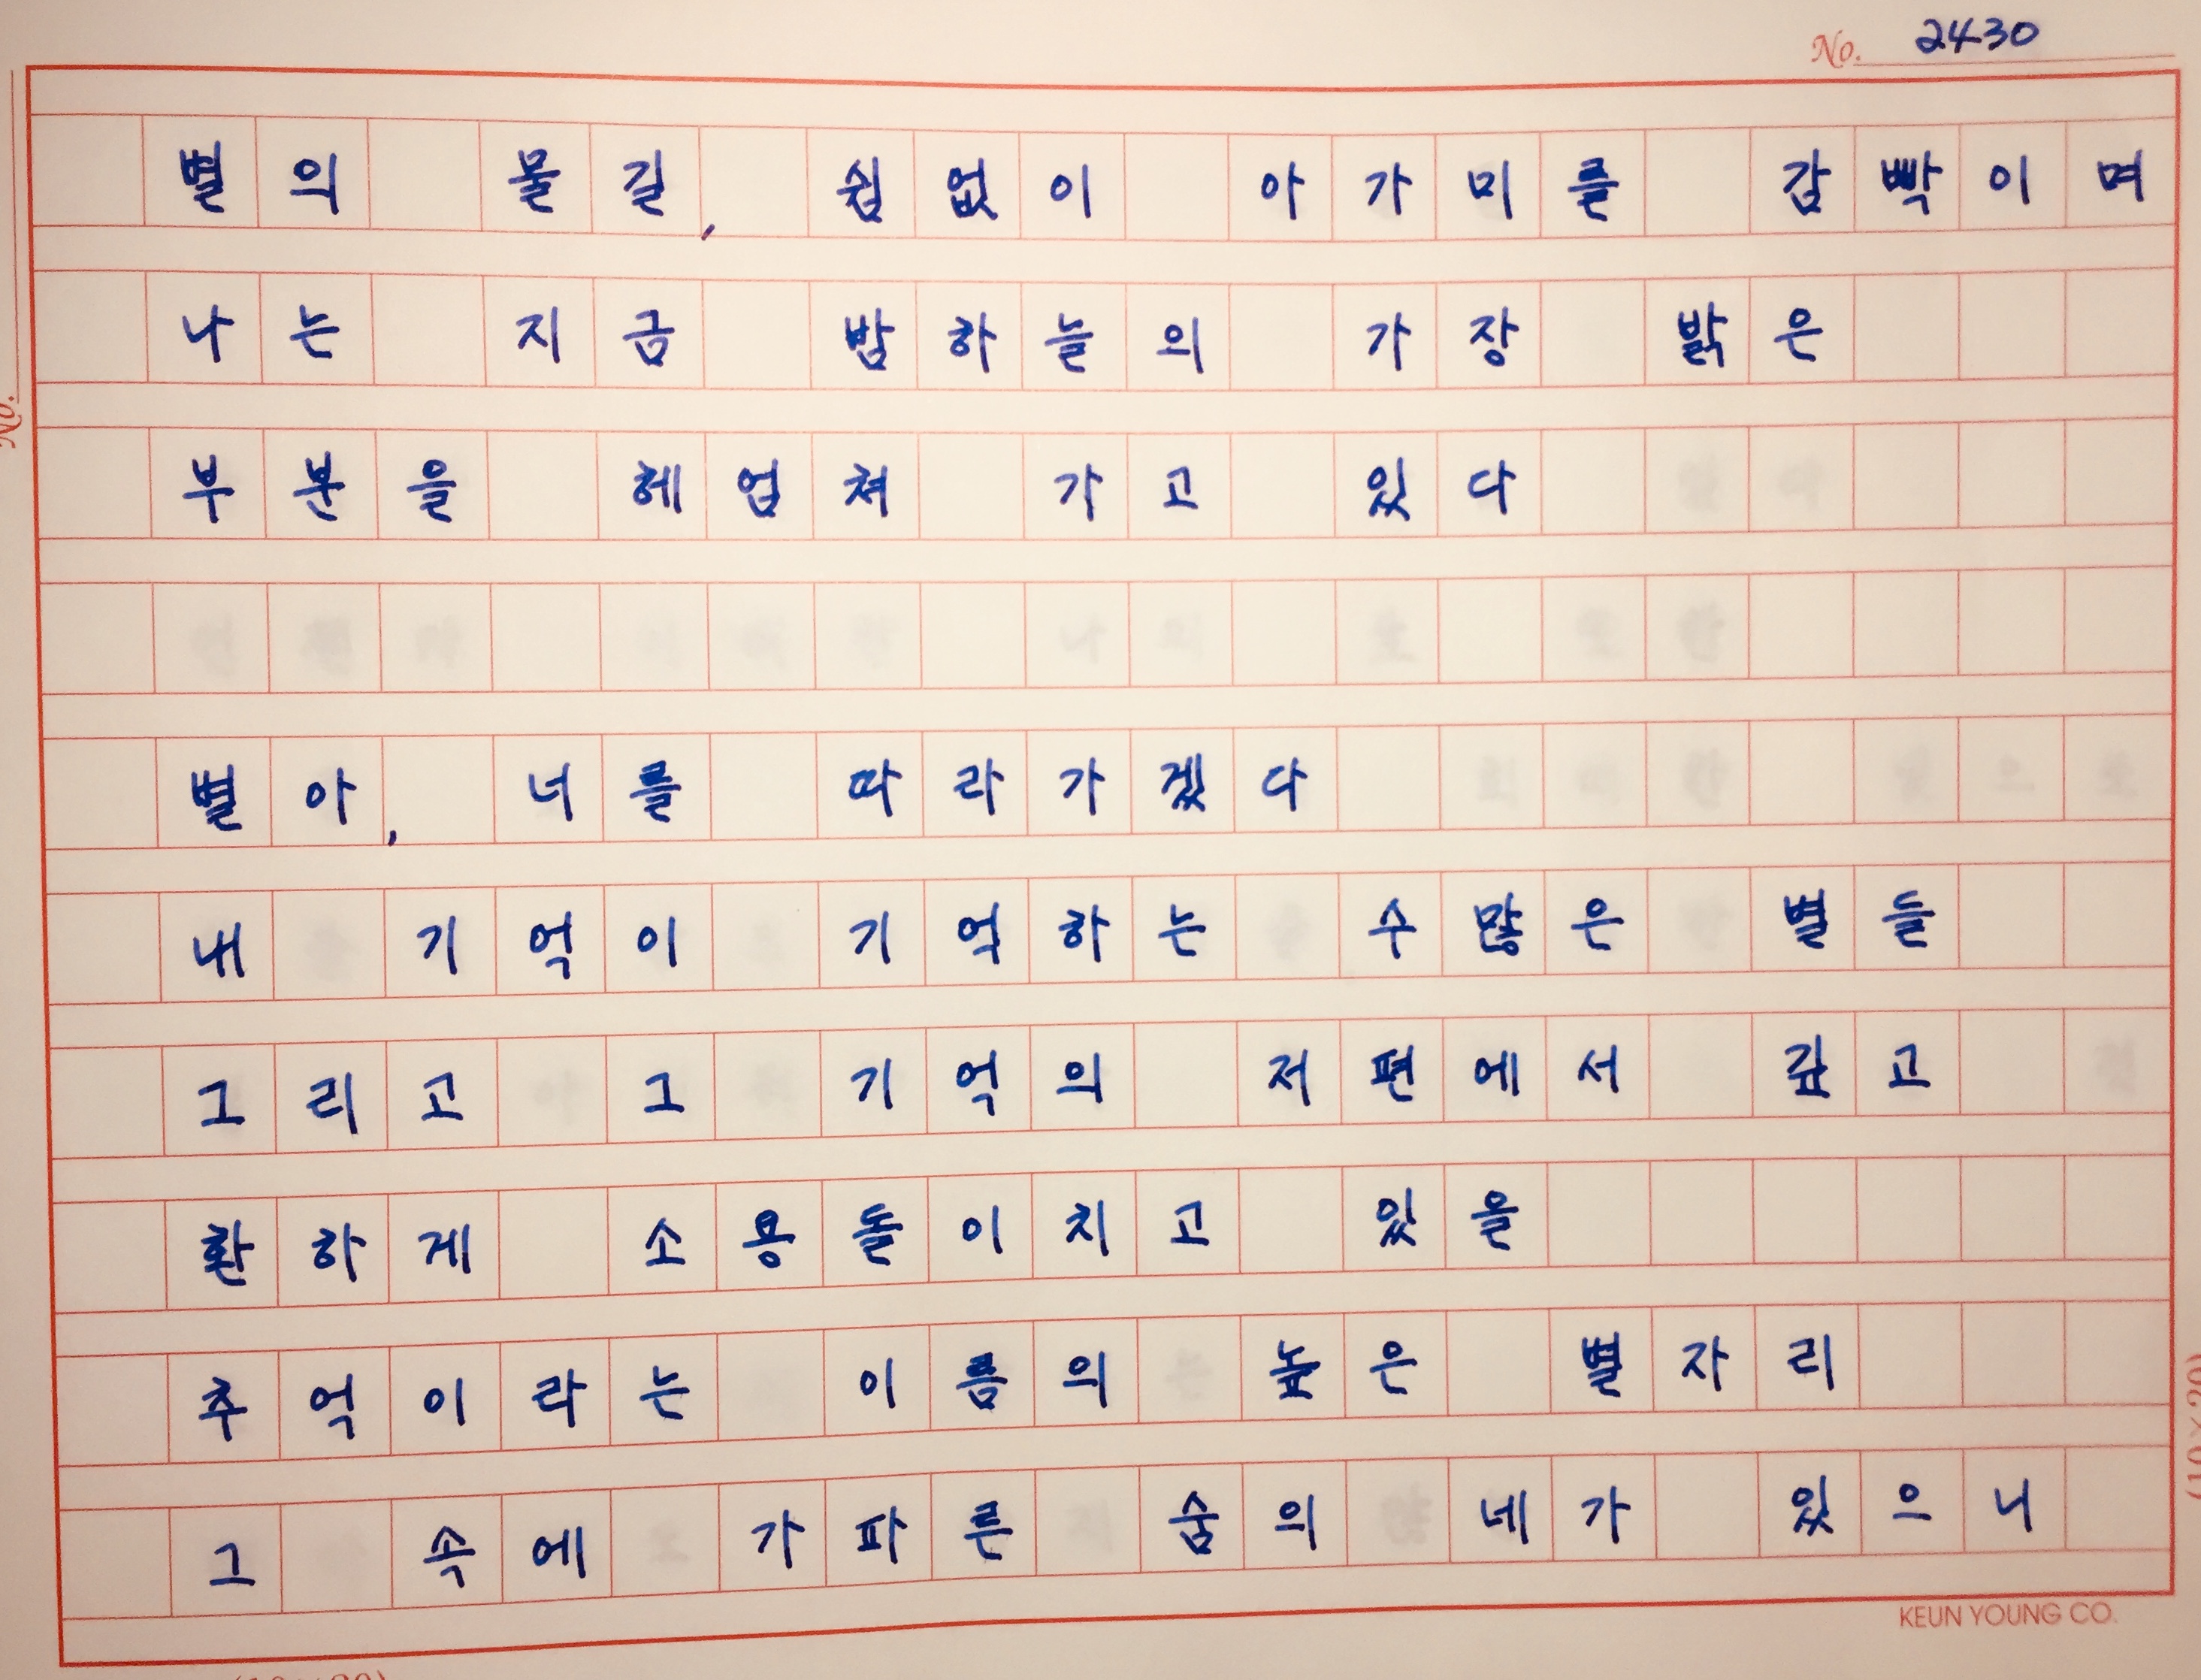 No. 2430
별의 물길, 쉼없이 아가미를 갑빡이며
나는 지금 밤하늘의 가장 밝은
부분을 헤엄쳐 가고 있다
별아, 너를 따라가겠다
내 기억이 기억하는 수많은 별들
그리고 그 기억의 저편에서 깊고
환하게 소용돌이치고 있을
추억이라는 이름의 높은 별자리
그 속에 가파른 숨의 네가 있으니
KEUN YOUNG CO.
No.